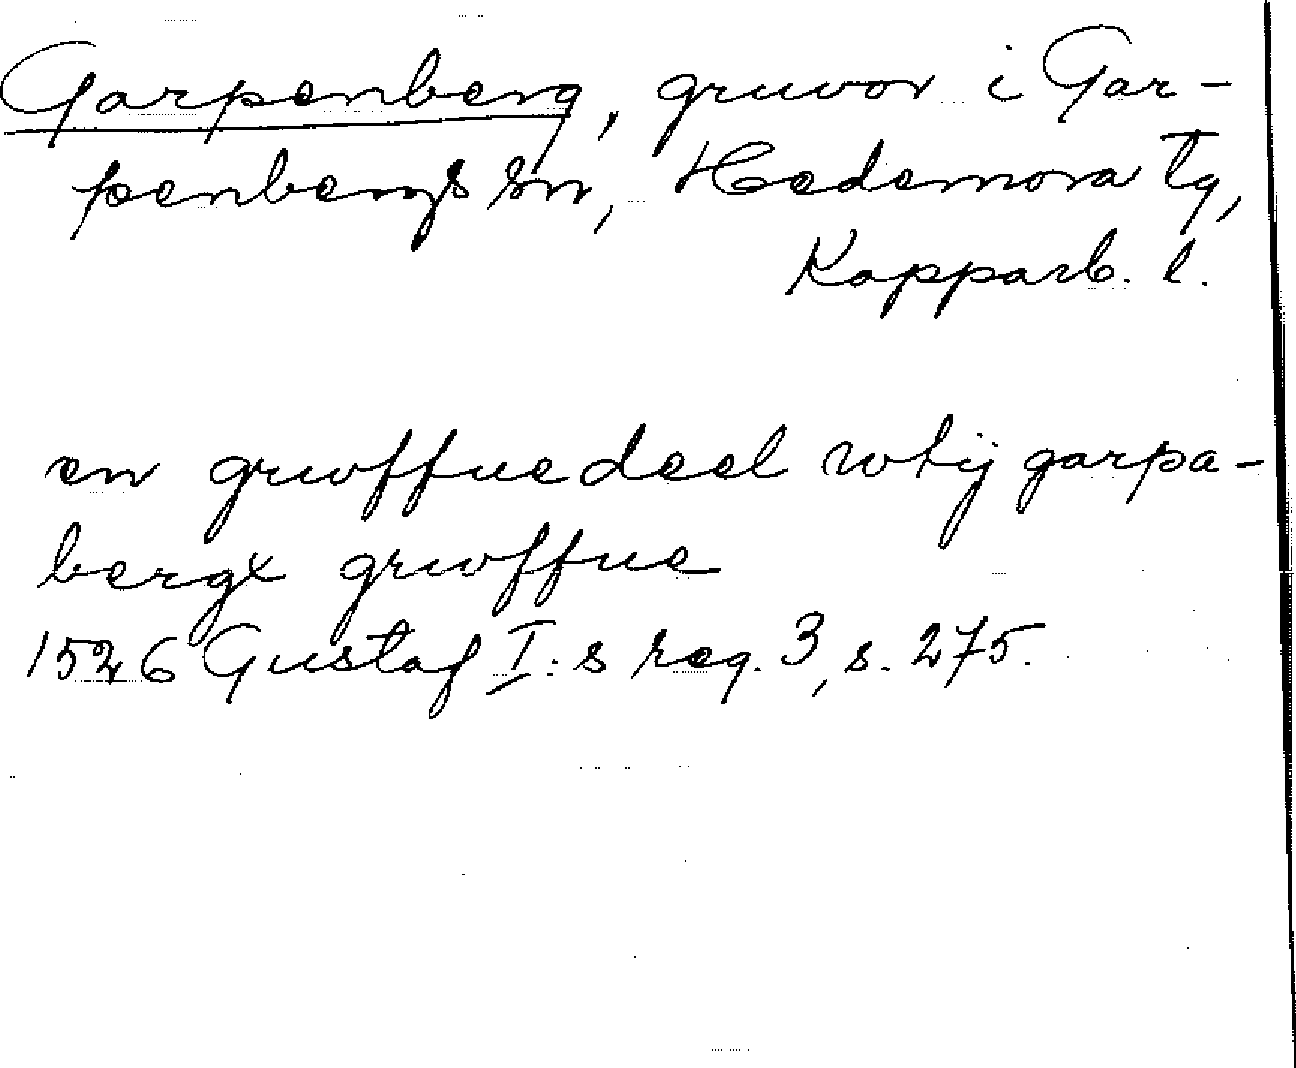 Garpenberg, gruvor i Gar-
penbergs sn, Hedemora tg,
Kopparb. l.
en gruffue deel whij garpa-
bergx gruffue
1526 Gustaf I:s reg. 3, s. 275.